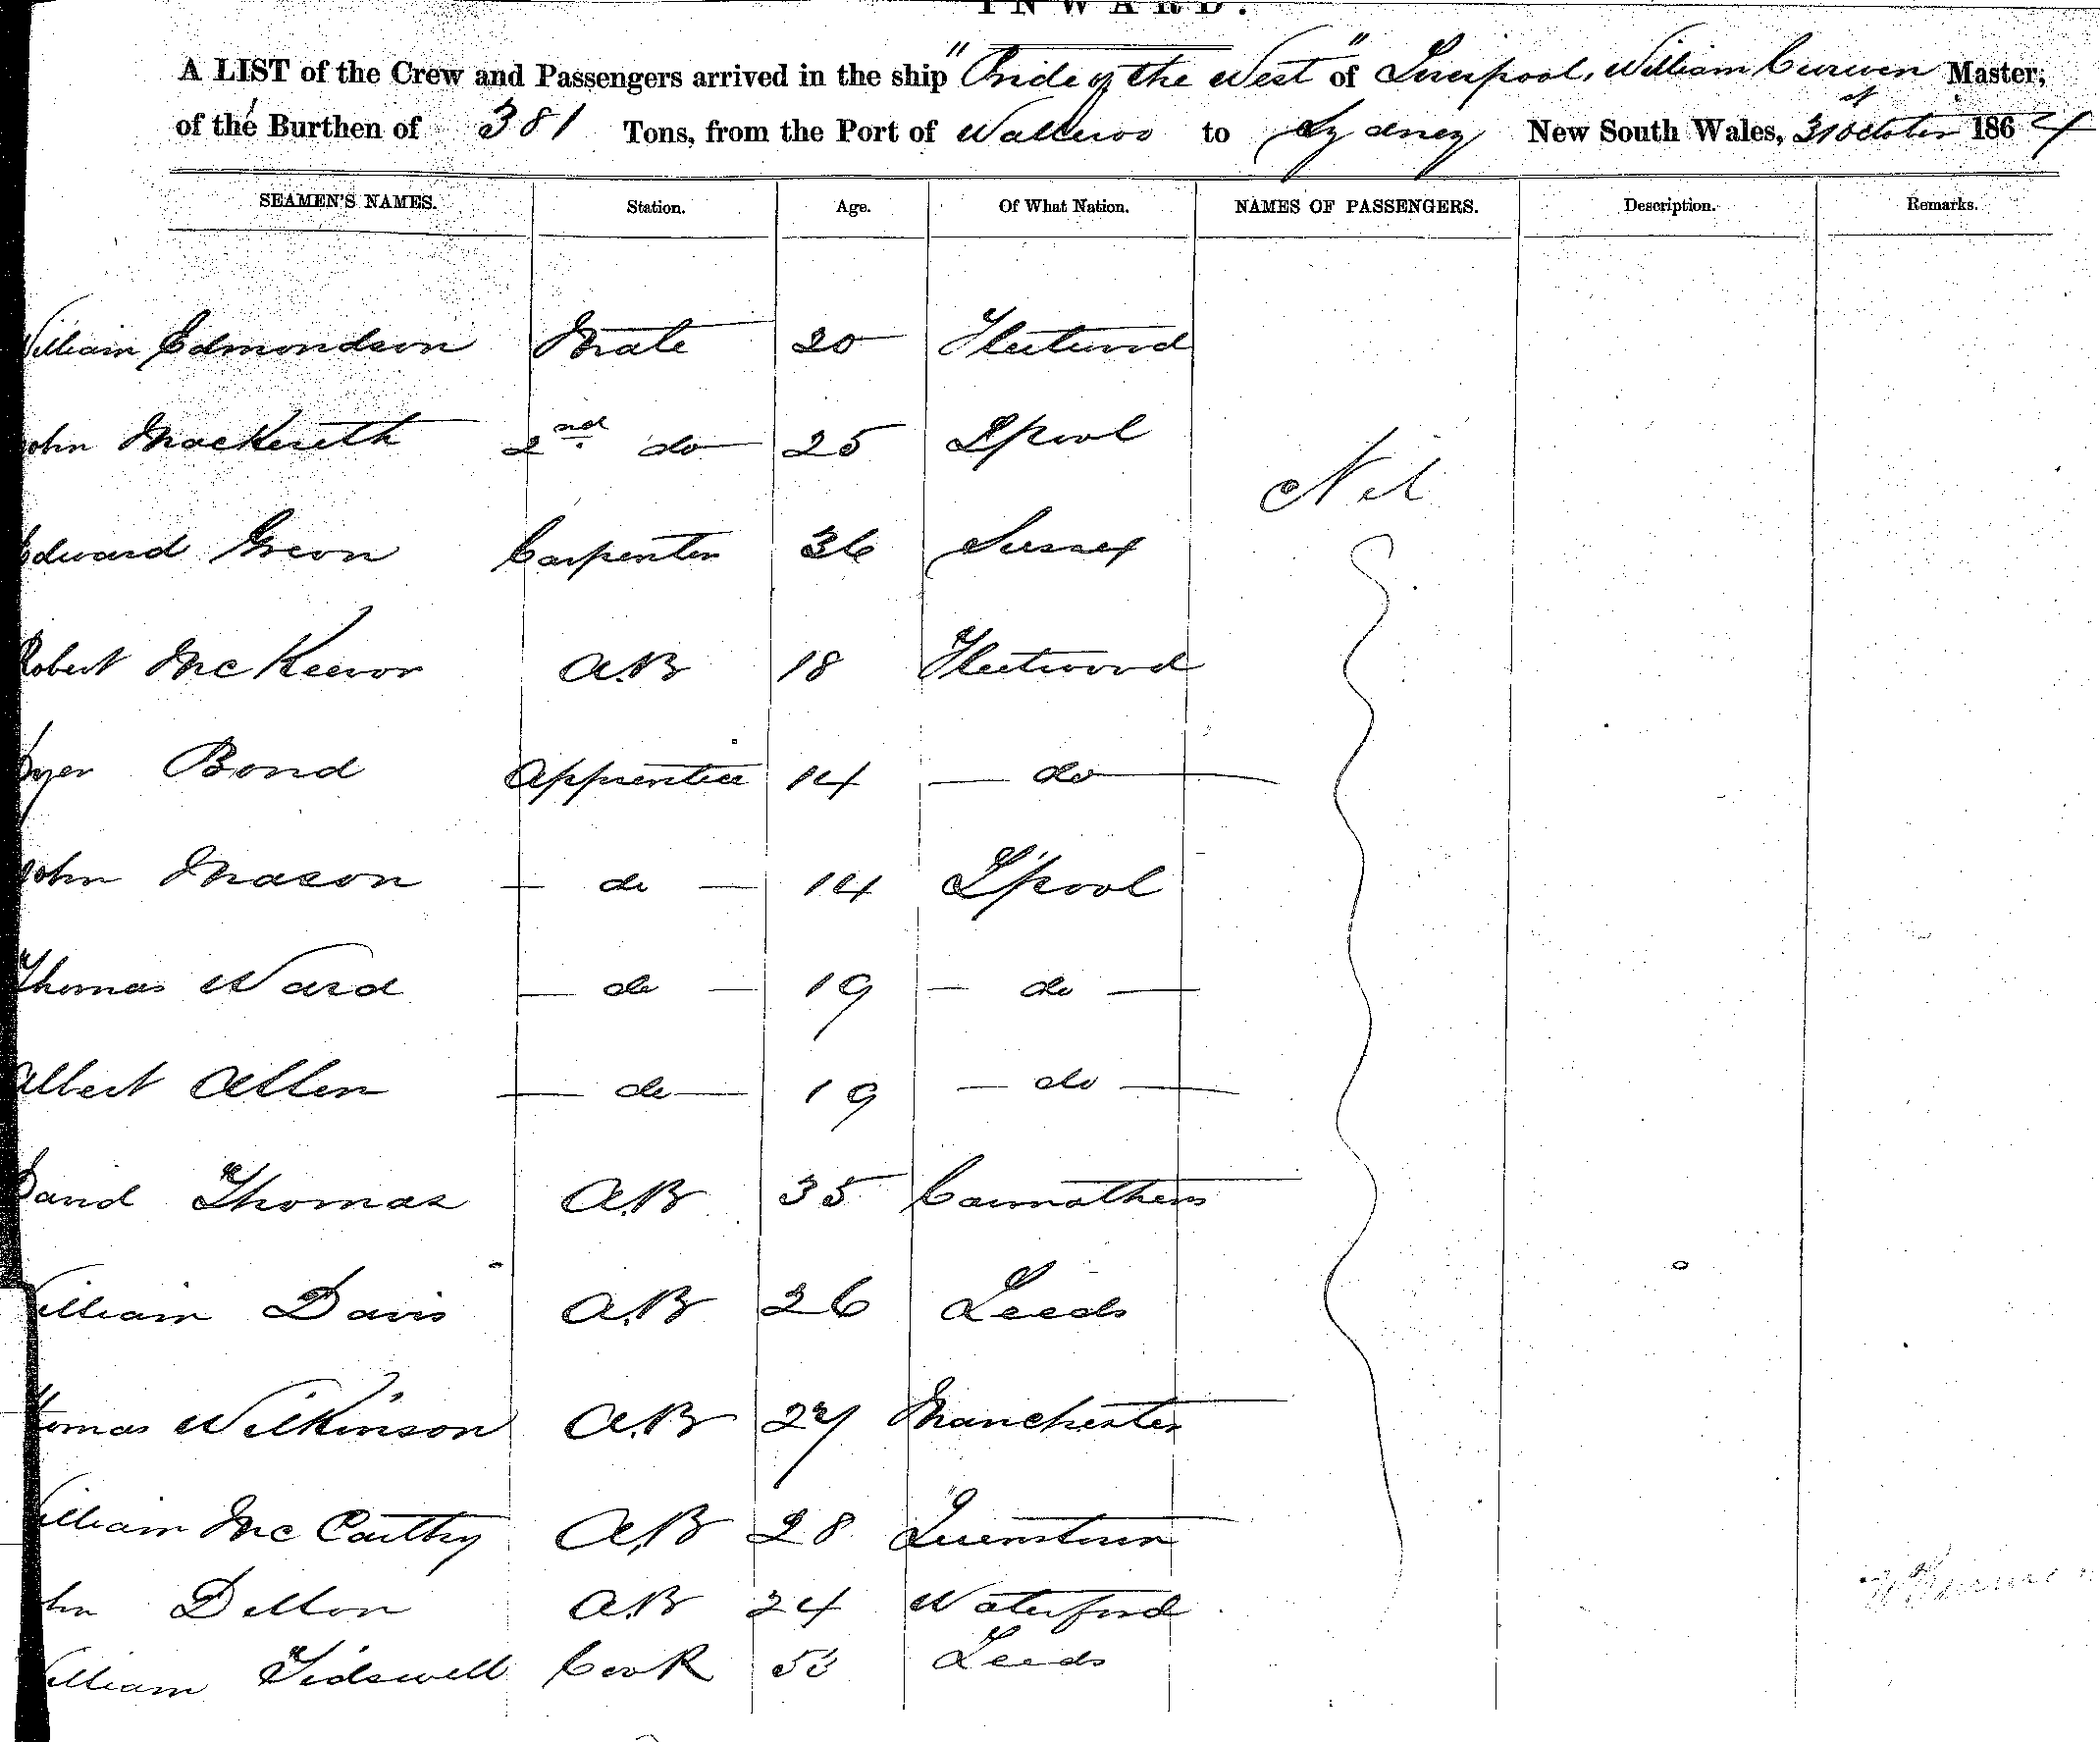 INWARD.
A LIST of the Crew and Passengers arrived in the ship "Pride of the West" of Liverpool, William Curwen Master,
of the Burthen of 381 Tons, from the Port of Walleroo to Sydney New South Wales, 31st October 1864
SEAMEN'S NAMES. Station. Age. Of What Nation. NAMES OF PASSENGERS. Description. Remarks.
William Edmondson Mate 20 Fleetwood
John Mackereth 2nd do 25 Lpool
Nil
Edward Green Carpenter 36 Sussex
Robert McKeevor A.B 18 Fleetwood
Dyer Bond Apprentice 14 — do —
John Mason — do — 14 L'pool
Thomas Ward — do — 19 — do —
Albert Allen — do — 19 — do —
David Thomas A.B 35 Carmathern
William Davis A.B 26 Leeds
Thomas Wilkinson A.B 27 Manchester
William McCarthy A.B 28 Queenstown
John Dillon A.B 24 Waterford
William Tidswell Cook Leeds